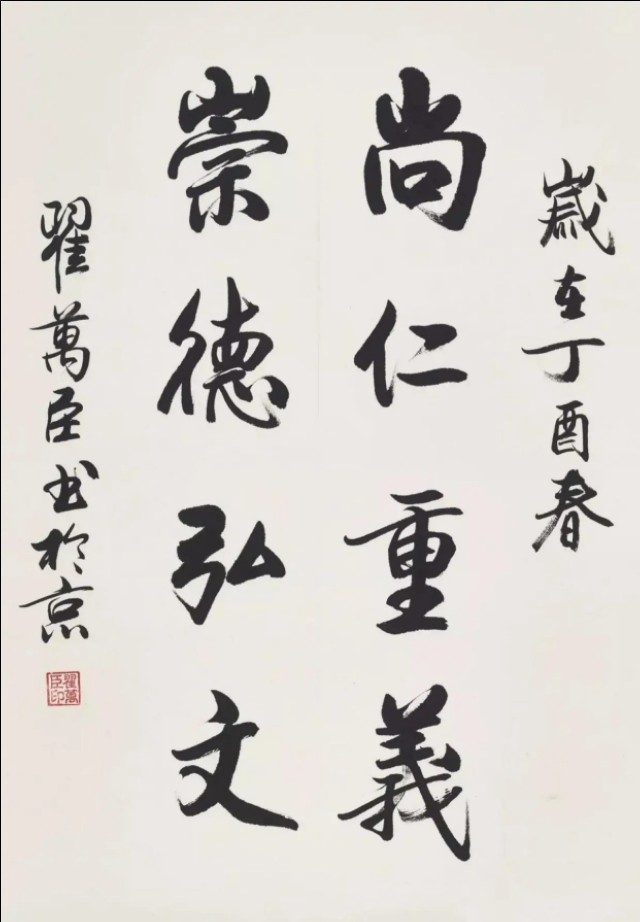 歲在丁酉春
尚仁重義
崇德弘文
翟萬臣书於京
翟萬臣印